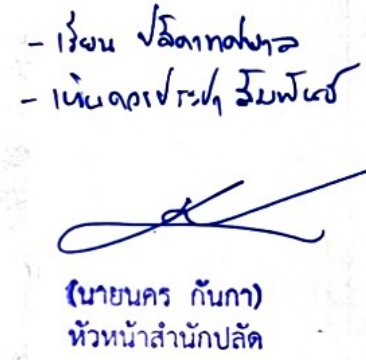 - เรียน ปลัดเทศบาล
- เห็นควรประชาสัมพันธ์
(นายนคร กันกา)
หัวหน้าสำนักปลัด